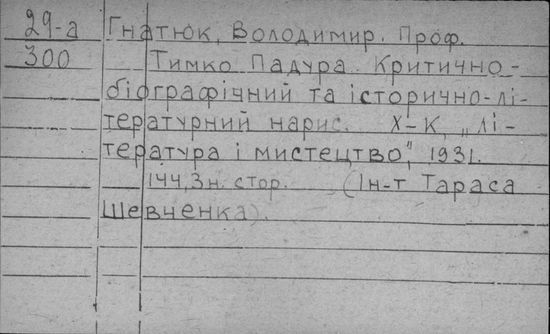 29-а Гнатюк, Володимир. Проф.
300 Тимко Падура. Критично-
біографічний та історично-лі-
тературний нарис. Х-К, „Лі-
тература і мистецтво", 1931.
144, 3 н. стор. (Ін-т Тараса
Шевченка).